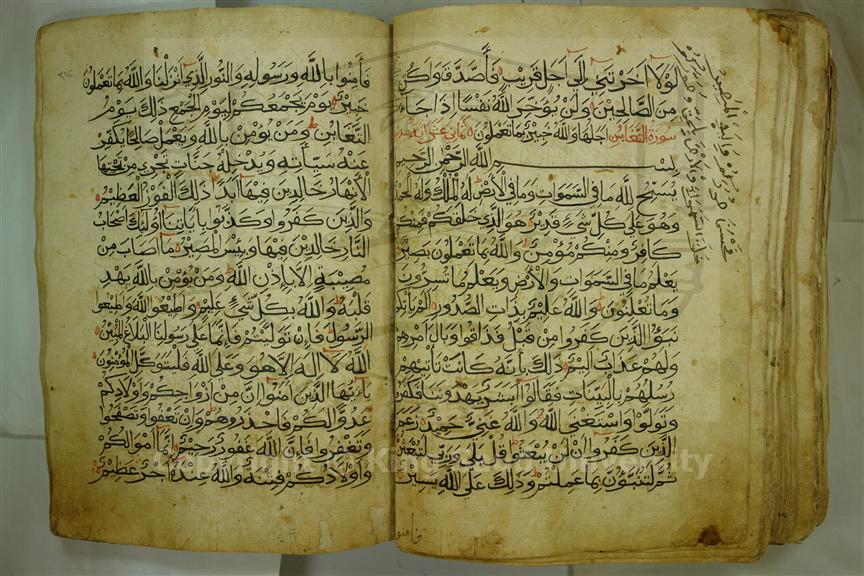 لولا اخرتني الى اجل قريب فاصدق واكن
من الصالحين ولن يؤخر الله نفسا اذا جاء
سورة التغابن اجلها والله خبير بما تعملون ثماني عشر اية
بسم الله الرحمن الرحيم
يسبح لله ما في السموات وما في الارض له الملك وله الحمد
وهو على كل شيء قدير هو الذي خلقكم فمنكم
كافر ومنكم مؤمن والله بما تعملون بصير
يعلم ما في السموات والارض ويعلم ما تسرون
وما تعلنون والله عليم بذات الصدور الم ياتكم
نبؤ الذين كفروا من قبل فذاقوا وبال امرهم
ولهم عذاب اليم ذلك بانه كانت تاتيهم
رسلهم بالبينات فقالوا ابشر يهدوننا فكفروا
وتولوا واستغنى الله والله غني حميد زعم
الذين كفروا ان لن يبعثوا قل بلى وربي لتبعثن
ثم لتنبؤن بما عملتم وذلك على الله يسير
خلق السموات والارض بالحق وصوركم
فاحسن صوركم واليه المصير
فامنوا
فامنوا بالله ورسوله والنور الذي انزلنا والله بما تعملون
خبير يوم يجمعكم ليوم الجمع ذلك يوم
التغابن ومن يؤمن بالله ويعمل صالحا يكفر
عنه سيئاته ويدخله جنات تجري من تحتها
الانهار خالدين فيها ابدا ذلك الفوز العظيم
والذين كفروا وكذبوا باياتنا اولئك اصحاب
النار خالدين فيها وبئس المصير ما اصاب من
مصيبة الا باذن الله ومن يؤمن بالله يهد
قلبه والله بكل شيء عليم واطيعوا الله واطيعوا
الرسول فان توليتم فانما على رسولنا البلاغ المبين
الله لا اله الا هو وعلى الله فليتوكل المؤمنون
يا ايها الذين امنوا ان من ازواجكم واولادكم
عدوا لكم فاحذروهم وان تعفوا وتصفحوا
وتغفروا فان الله غفور رحيم انما اموالكم
واولادكم فتنة والله عنده اجر عظيم